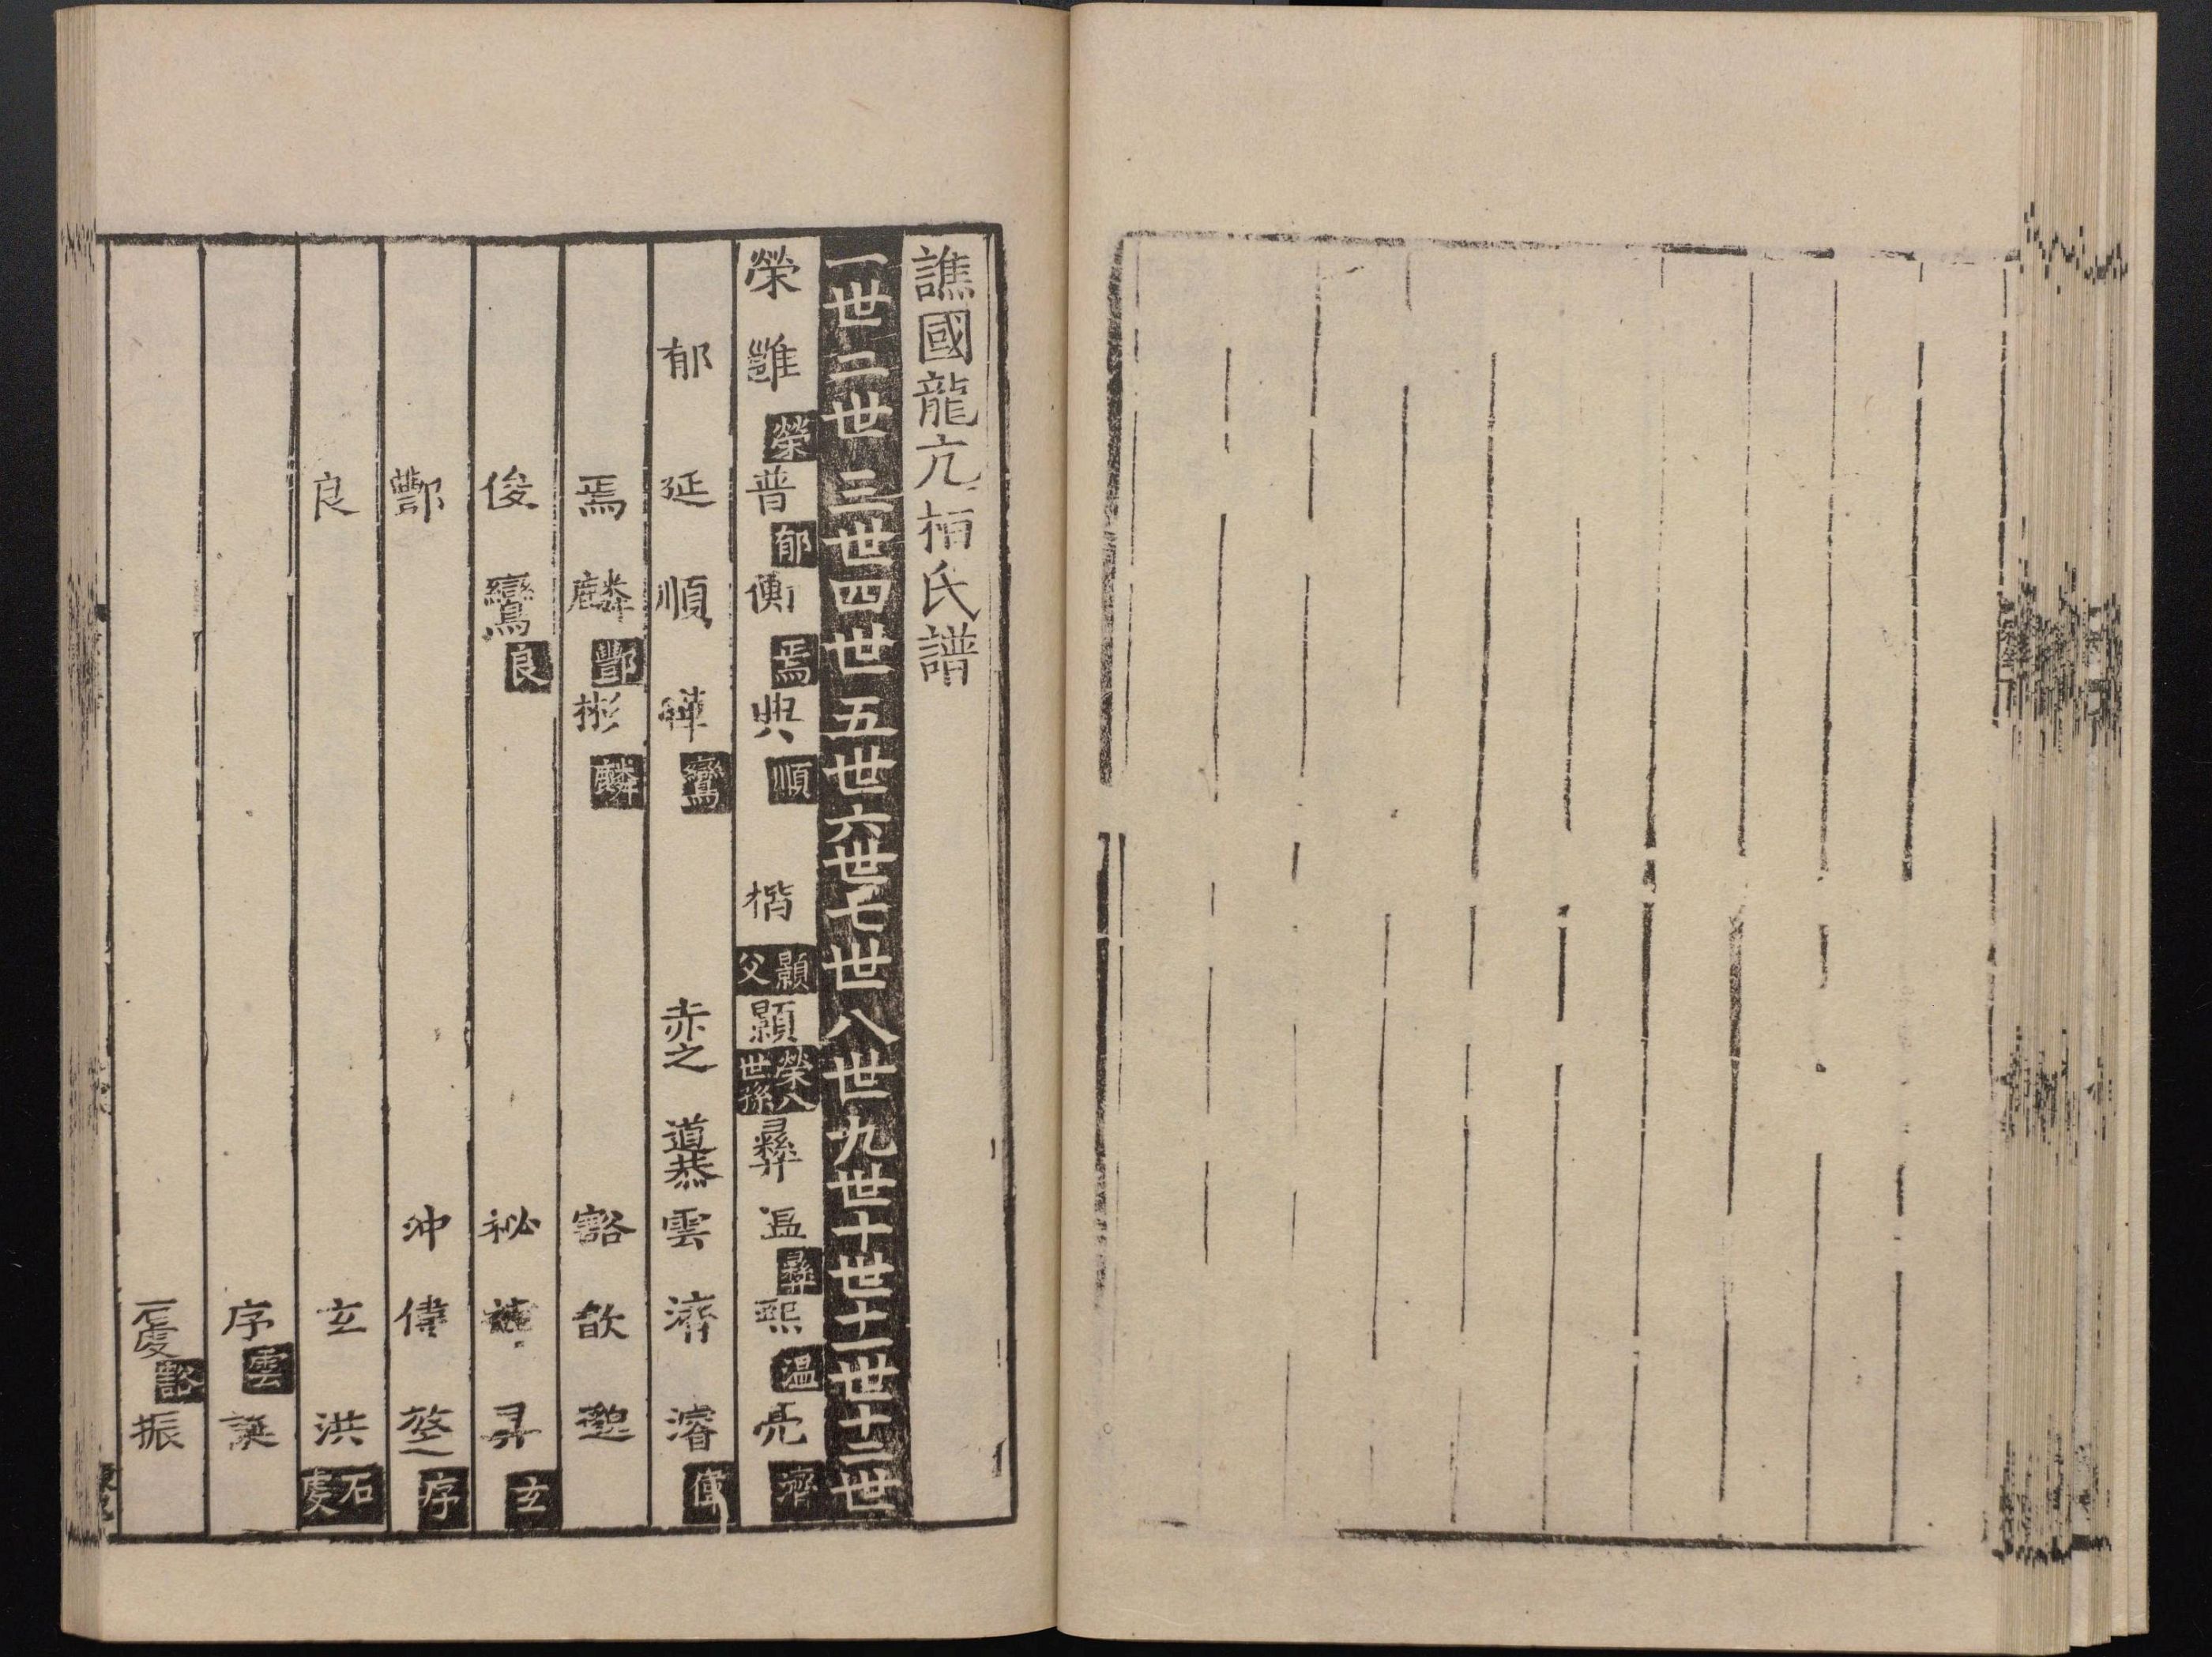 譙國龍亢桓氏譜
一世二世三世四世五世六世七世八世九世十世十一世十二世
榮雝榮普郁衡焉典順楷顥父顥榮八世孫彝温彝熙溫亮濟
郁延順曄鸞赤之道恭雲濟濬偉
焉麟酆彬麟豁歆
俊鸞良祕昇玄
酆沖偉序
良玄洪石虔
序雲誕
石虔豁振